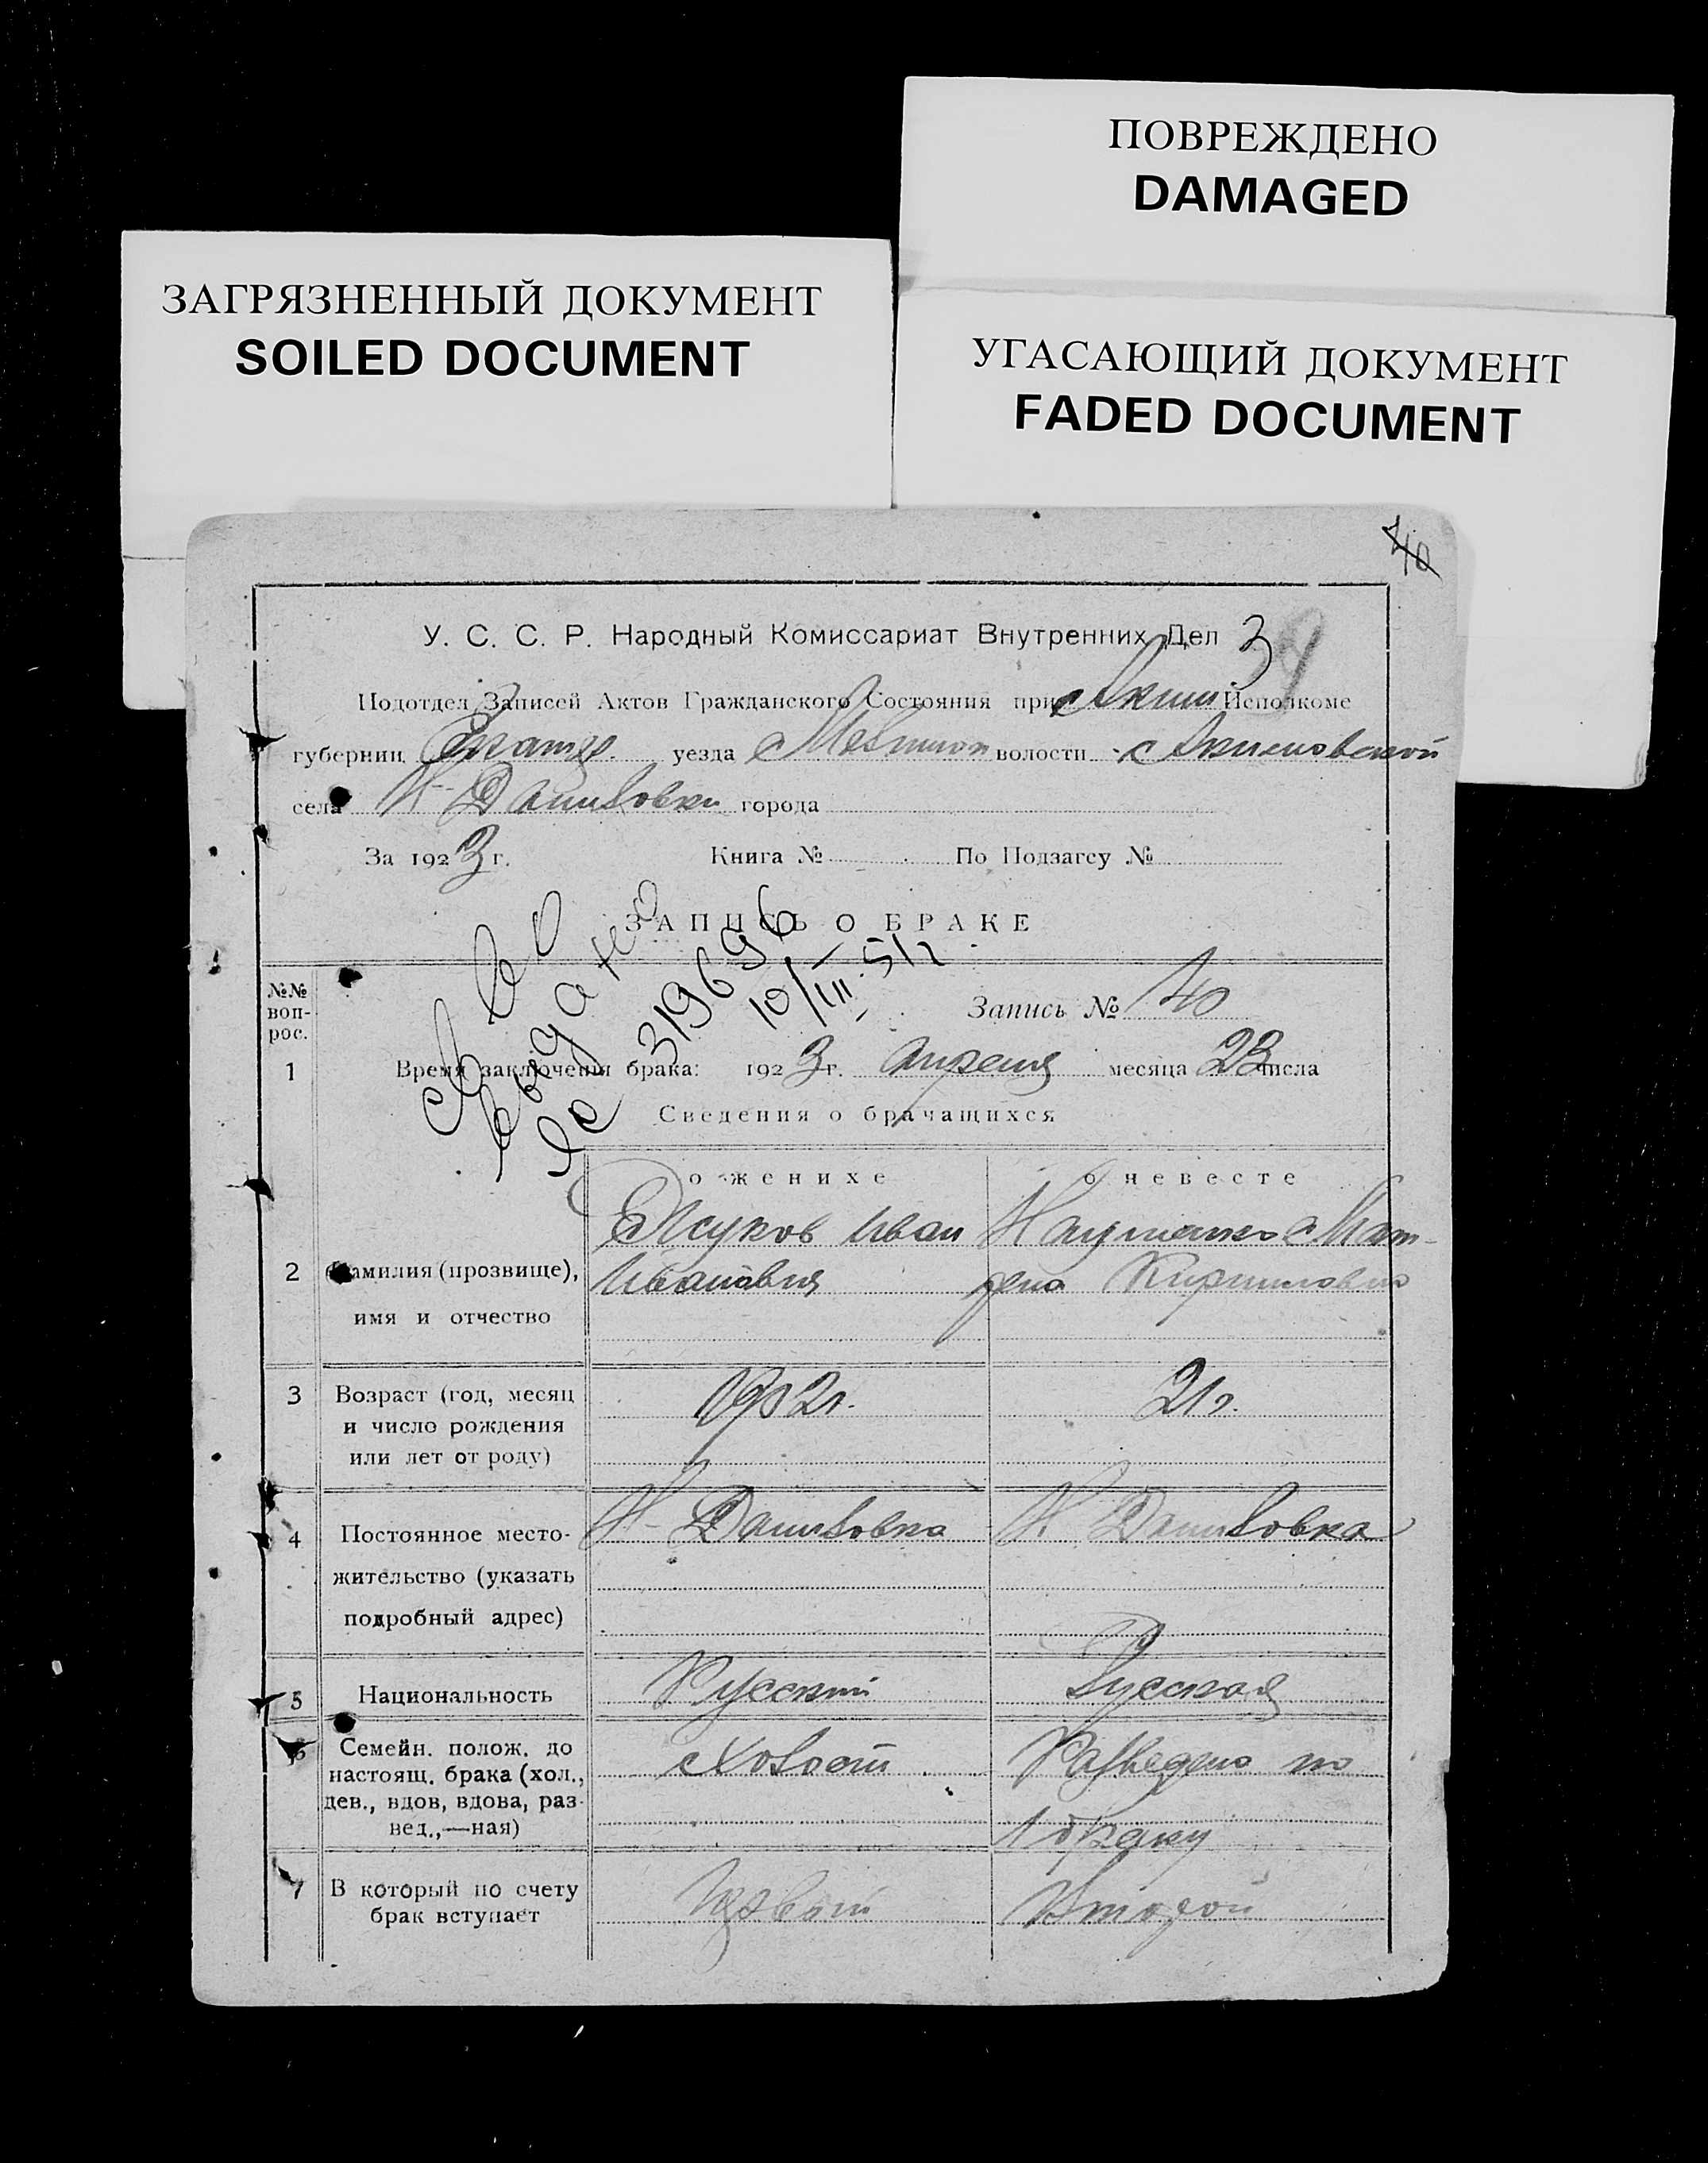 ПОВРЕЖДЕНО
DAMAGED
ЗАГРЯЗНЕННЫЙ ДОКУМЕНТ
SOILED DOCUMENT
УГАСАЮЩИЙ ДОКУМЕНТ
FADED DOCUMENT
40
У. С. С. Р. Народный Комиссариат Внутренних Дел 39
Подотдел Записей Актов Гражданского Состояния при Аким Исполкоме
губернии Екатер. уезда Мелитоп волости Акимовской
села Н-Даниловки города
За 1923 г. Книга № По Подзагсу №
ЗАПИСЬ О БРАКЕ
Выдано
ЯС 319696
10/III 51
№№ воп-
рос.
Запись № 40
1 Время заключения брака: 1923 г. Апреля месяца 23 числа
Сведения о брачащихся
о женихе о невесте
Жуков Иван Науменко Мат-
2 Фамилия (прозвище), Ивановия рена Кирилловна
имя и отчество
3 Возраст (год, месяц 1902г. 21г.
и число рождения
или лет от роду)
4 Постоянное место- Н-Даниловка Н Даниловка
жительство (указать
подробный адрес)
5 Национальность Русский Русская
6 Семейн. полож. до Холост Разведена по
настоящ. брака (хол.,
дев., вдов, вдова, раз-
вед.,—ная) 1 браку
7 В который по счету Первый Второй
брак вступает